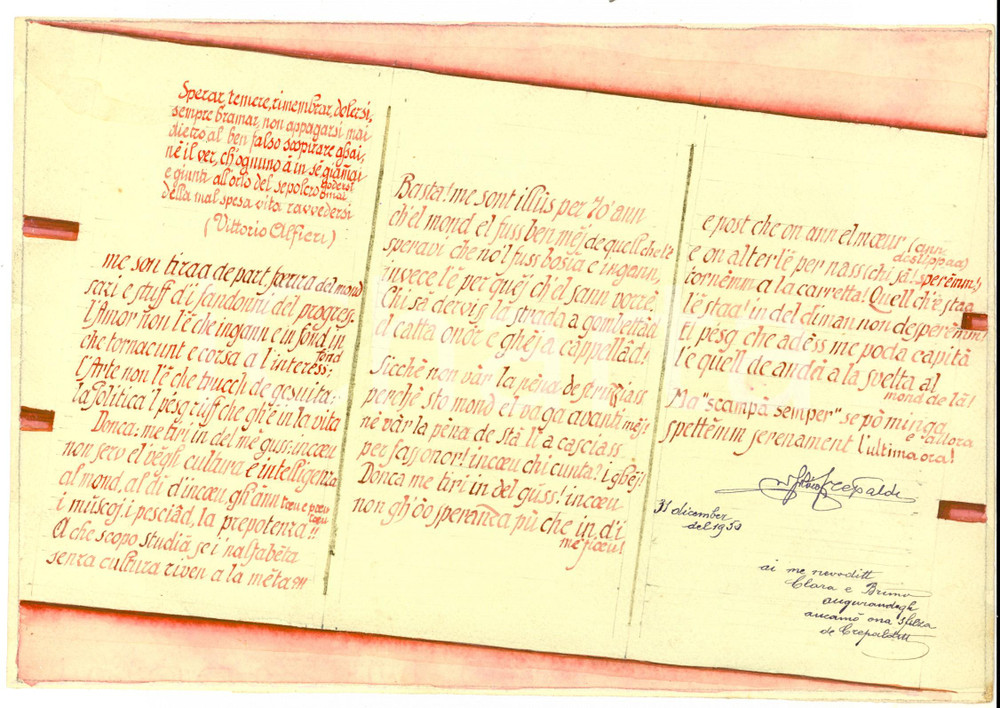 Sperar, temere, rimembrar, dolersi,
sempre bramar, non appagarsi mai
dietro al ben falso sospirare assai,
nè il ver, ch'ognuno à in sè giammai
godersi
e giunti all'orlo del sepolcro omai
della mal spesa vita ravvedersi
(Vittorio Alfieri)
me son tiraa de part, foeura del mond
sazi e stuff d'i fandonni del progress.
L'Amor non l'è che ingann e in fond, in
fond
che tornacunt e corsa a l'interess:
l'Arte non l'è che trucch de gesuita:
la Politica 'l pèsg riff che gh'è in la vita
Donca: me tiri in del me guss: incoeu
non serv el vègh cultura e intelligenza
al mond, al dì d'incoeu, gh'ànn toeu e poeu
toeu
i muscoj, i pesciàd, la prepotenza!!
A che scopo studià se i inalfabèta
senza cultura riven a la mèta?!!
Basta! me sont illùs per 70 ann
ch'el mond el fuss ben mèj de quell che l'è
speravi che no'l fuss bosìa e ingann,
invece l'è per quèj ch'el sann vorrè.
Chi sà dervìss la strada a gombettàd
el catta onòr e ghèj a cappellàd!
Sicchè non vàr la pèna de
perchè sto mond el vaga avanti mèj!
nè vàr la pèna de stà lì a casciass
per fass onor! incoeu chi cunta? i ghèj!
Donca me tiri in del guss! incoeu
non gh'òo speranza pù che in d'i
me fioeu!
e post che on ann el moeur (ann
desluppaa)
e on alter l'è per nass (chi sà! sperèmm!)
tornèmm a la carretta! Quell ch'è staa
l'è staa! in del diman non desperèmm!
El pèsg che adèss me poda capità
l'è quell de andà a la svelta al
mond de là!
Ma "scampà semper" se pò minga
e allora
spettèmm serenament l'ultima ora!
Crepaldi
31 dicembre
del 1950
ai me nevoditt
Clara e Bruno
augurandegh
ancamò ona sfilza
de Crepalditt